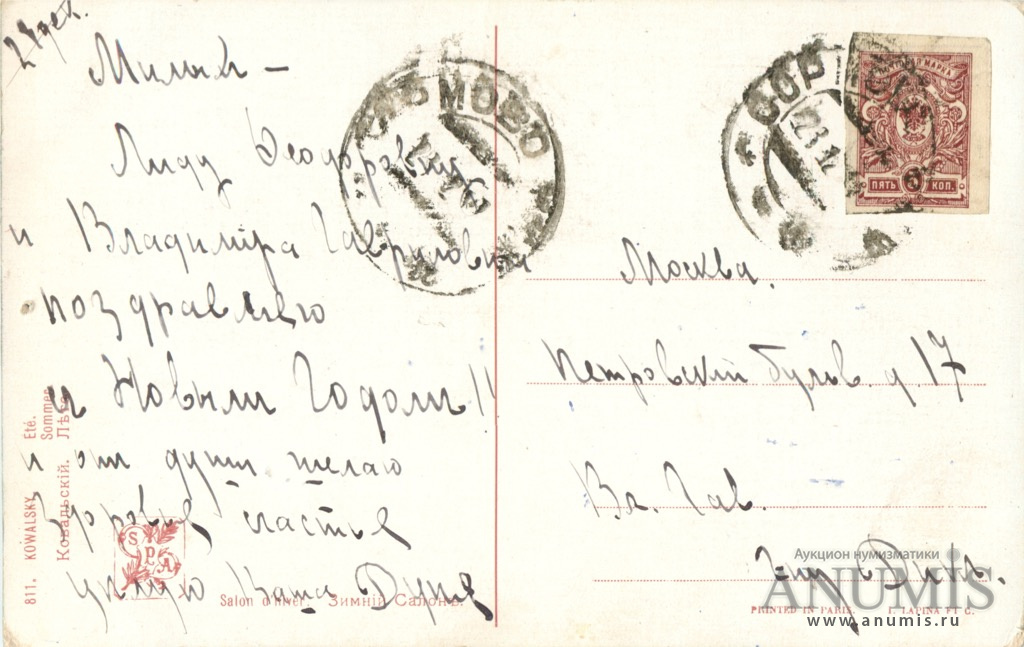 24 дек.
Милый –
Лиду Феодоровну
и Владимира Гавриловича
поздравляю
с Новым Годом!!
и от души желаю
здоровья счастья
целую Ваша Дуня
811. KOWALSKY Eté.
Sommer
Ковальскій. Лѣто
S P A
Salon d'hiver. Зимній Салонъ.
СОРМОВО
СОРМ
23 12
ПОЧТОВАЯ МАРКА
ПЯТЬ 5 КОП.
Москва.
Петровский бульв. д. 17
Вл. Гав.
PRINTED IN PARIS. I. LAPINA ET C.
Аукцион нумизматики
ANUMIS
www.anumis.ru